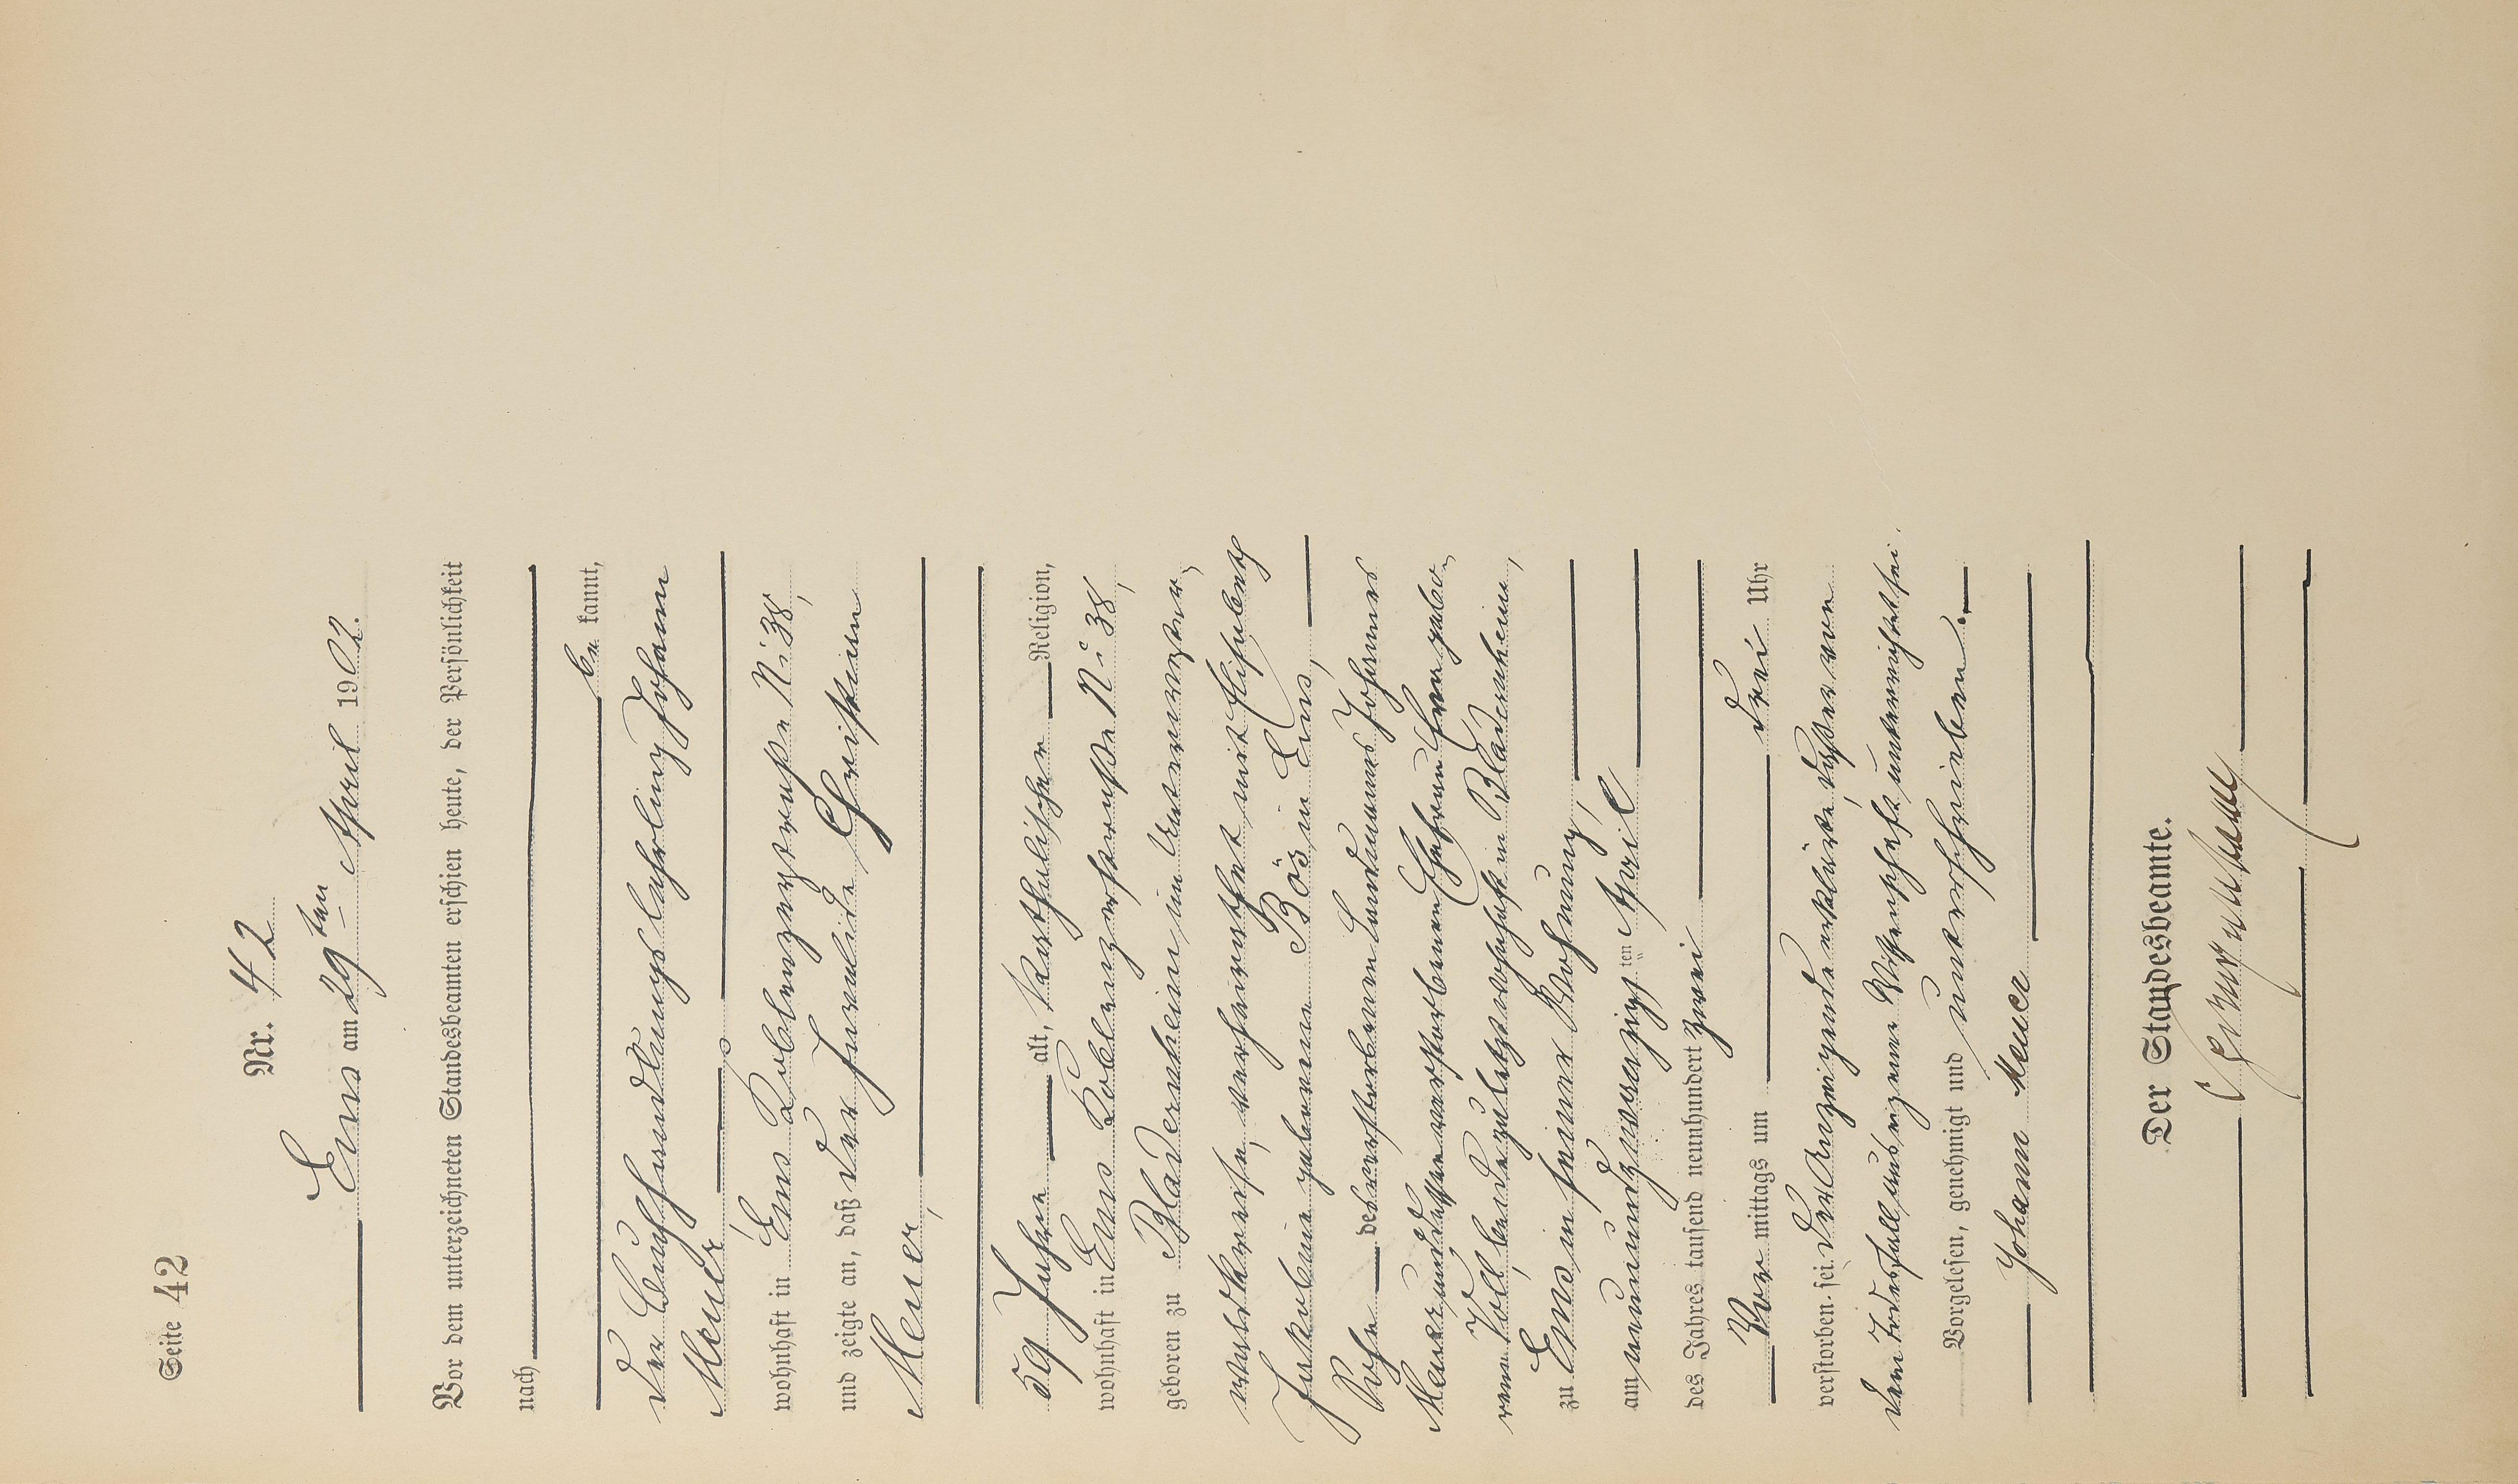 Seite 42
Nr. 42
Ems am 29ten April 1902.
Vor dem unterzeichneten Standesbeamten erschien heute, der Persönlichkeit
nach
be kannt,
der Buchhandlungslehrling Johann
Meuer,
wohnhaft in Ems Koblenzerstraße N: 38,
und zeigte an, daß der Invalide Christian
Meuer,
59 Jahre alt, katholischer Religion,
wohnhaft in Ems Koblenzerstraße N: 38,
geboren zu Bladernheim im Unterwester-
waldkreise, verheirathet mit Elisabeth
Jakobine geborenen Bös in Ems,
Sohn des verstorbenen Landmanns Johannes
Meuer und dessen verstorbenen Ehefrau gebo-
renen Voll, beide zuletzt wohnhaft in Bladernheim,
zu Ems in seiner Wohnung,
am neunundzwanzigsten April
des Jahres tausend neunhundert zwei
Vor mittags um drei Uhr
verstorben sei. Der Anzeigende erklärte, daß er von
dem Todesfall aus eigener Wissenschaft unterrichtet sei.
Vorgelesen, genehmigt und unterschrieben.
Johann Meuer
Der Standesbeamte.